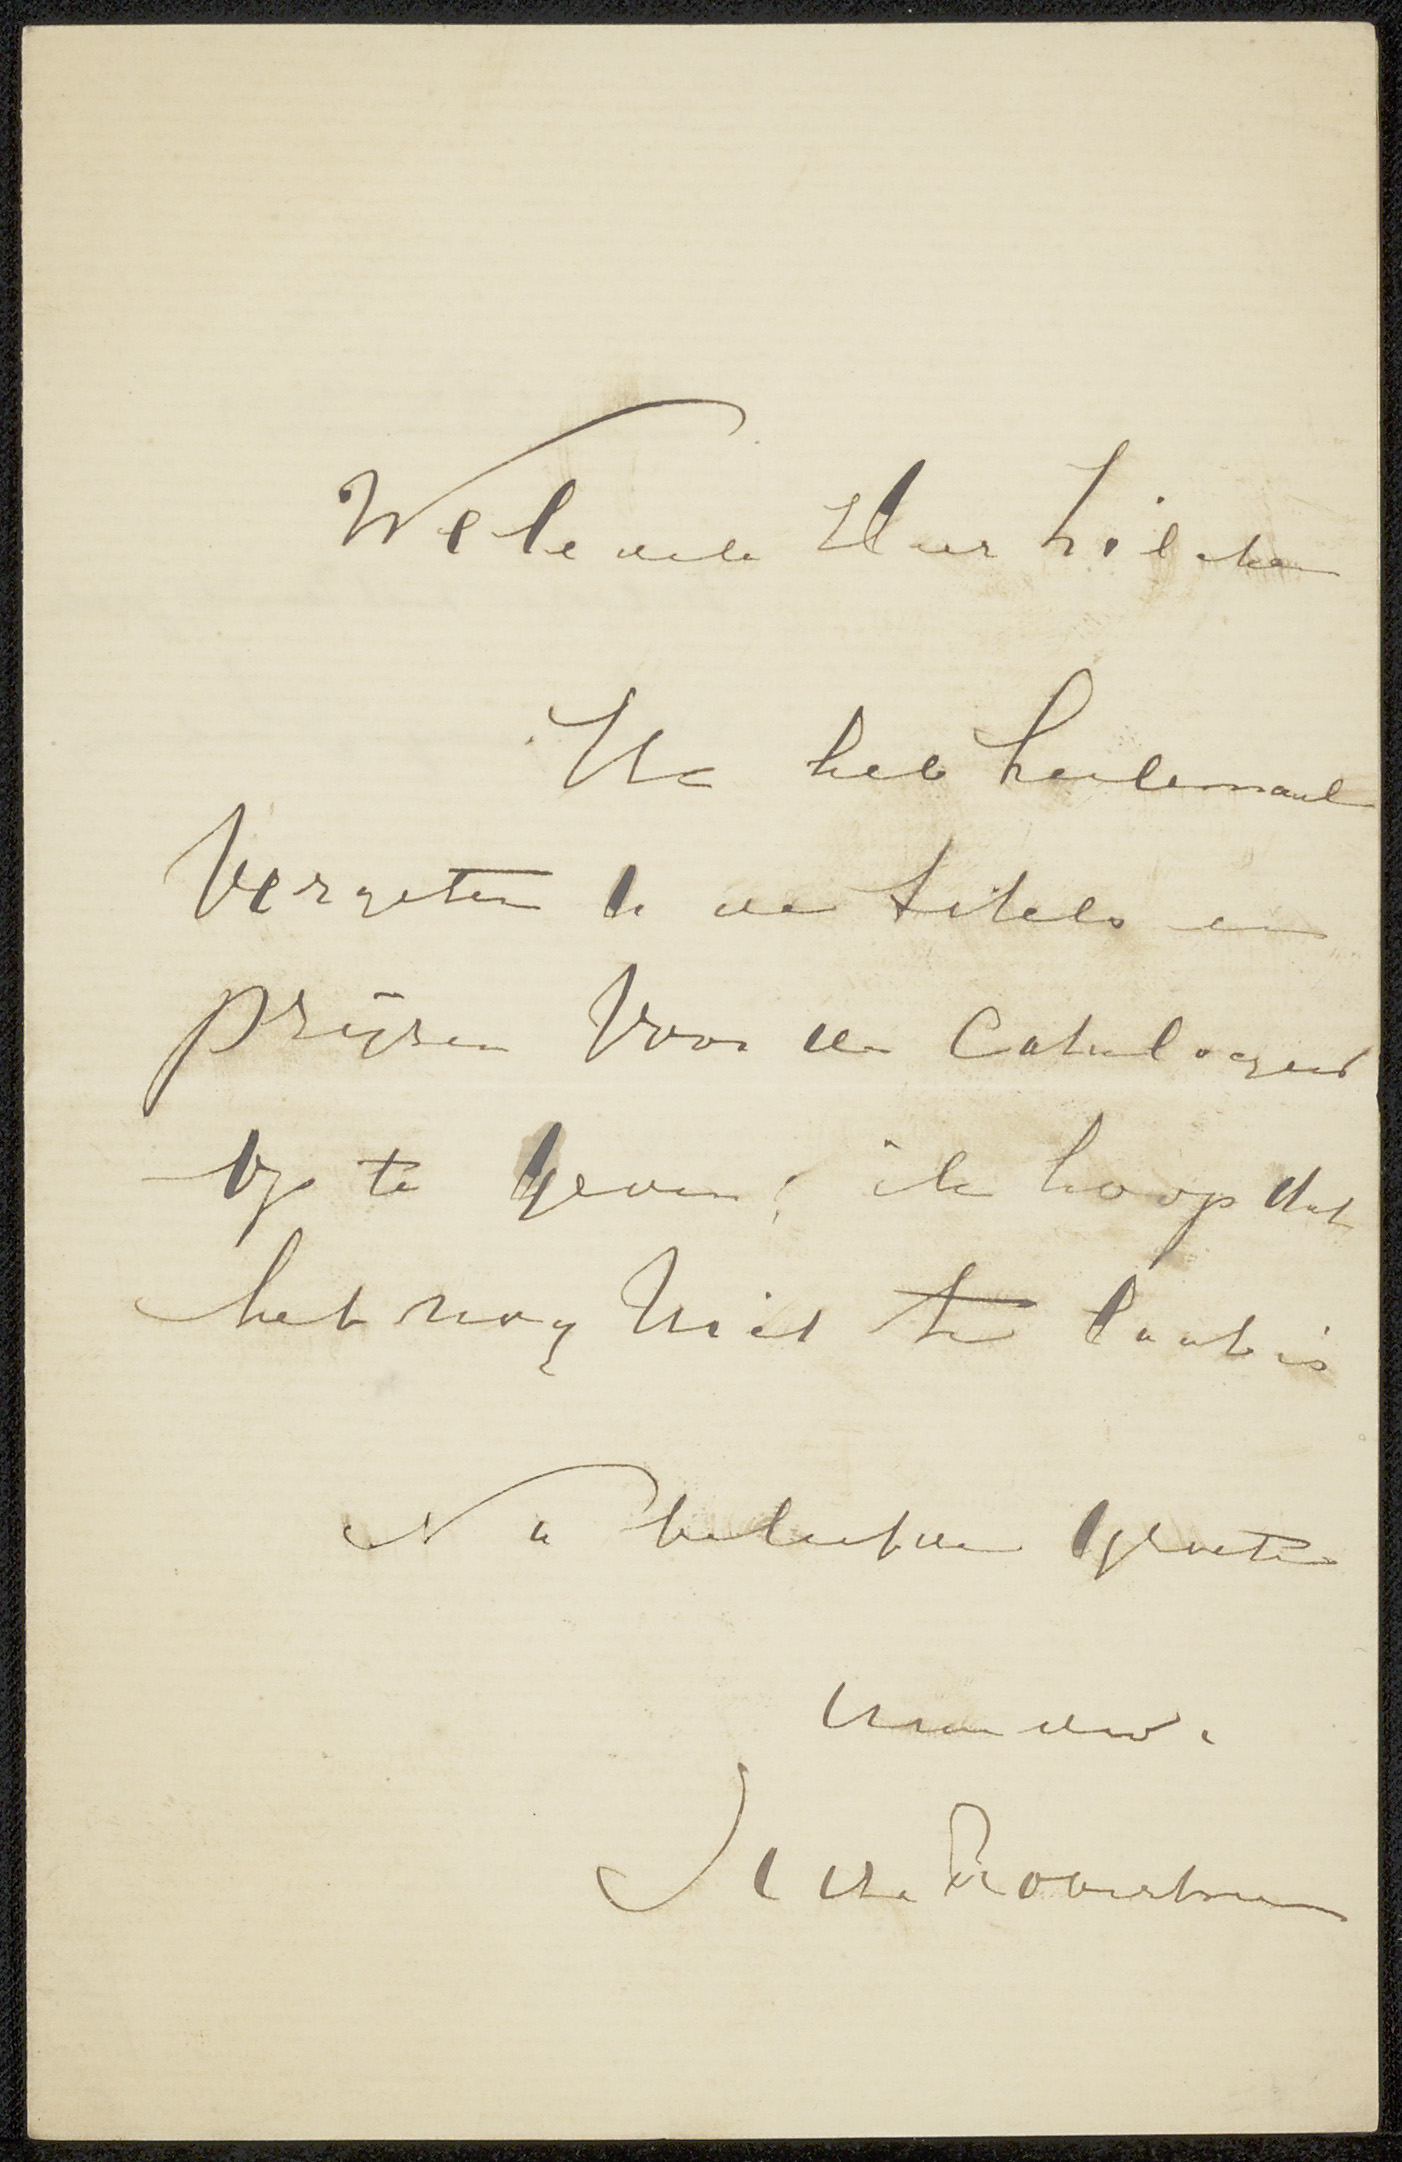 Weledele Heer Zilcken
Ik heb heelemaal
Vergeten U de titels en
prijzen Voor de Catalogus
op te geven; ik hoop dat
het nog Niet te laat is
Na beleefde groeten